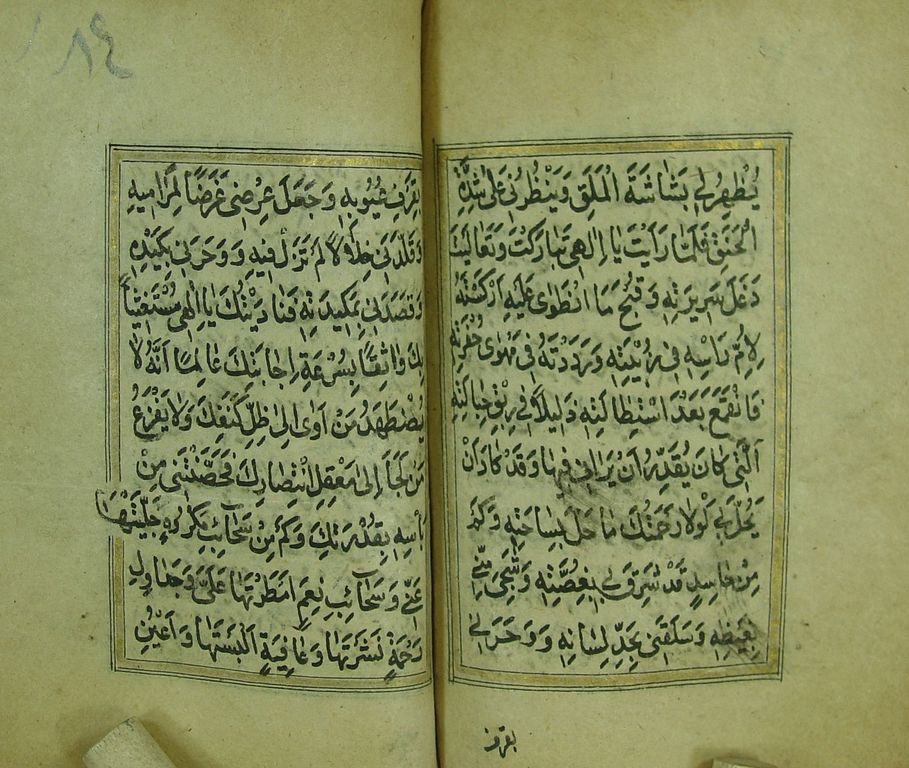 يُظْهِرُ لِي بَشَاشَةَ الْمَلَقِ وَيَنْظُرُنِي عَلَى شِدَّةِ
الْحَنَقِ فَلَمَّا رَأَيْتَ يَا إِلٰهِي تَبَارَكْتَ وَتَعَالَيْتَ
دَغَلَ سَرِيرَتِهِ وَقُبْحَ مَا انْطَوٰى عَلَيْهِ أَرْكَسْتَهُ
لِأُمِّ رَأْسِهِ فِي زُبْيَتِهِ وَرَدَدْتَهُ فِي مَهْوٰى حُفْرَتِهِ
فَانْقَمَعَ بَعْدَ اسْتِطَالَتِهِ ذَلِيلًا فِي رِبْقِ حِبَالَتِهِ
الَّتِي كَانَ يُقَدِّرُ أَنْ يَرَانِي فِيهَا وَقَدْ كَادَ أَنْ
يَحُلَّ بِي لَوْلَا رَحْمَتُكَ مَا حَلَّ بِسَاحَتِهِ وَكَمْ
مِنْ حَاسِدٍ قَدْ شَرِقَ بِي بِغُصَّتِهِ وَشَجِيَ مِنِّي
بِغَيْظِهِ وَسَلَقَنِي بِحَدِّ لِسَانِهِ وَوَحَرَنِي
بقرف
بِقَرْفِ عُيُوبِهِ وَجَعَلَ عِرْضِي غَرَضًا لِمَرَامِيهِ
وَقَلَّدَنِي خِلَالًا لَمْ تَزَلْ فِيهِ وَوَحَرَنِي بِكَيْدِهِ
وَقَصَدَنِي بِمَكِيدَتِهِ فَنَادَيْتُكَ يَا إِلٰهِي مُسْتَغِيثًا
بِكَ وَاثِقًا بِسُرْعَةِ إِجَابَتِكَ عَالِمًا أَنَّهُ لَا
يُضْطَهَدُ مَنْ أَوٰى إِلٰى ظِلِّ كَنَفِكَ وَلَا يَفْزَعُ
مَنْ لَجَأَ إِلٰى مَعْقِلِ انْتِصَارِكَ فَحَصَّنْتَنِي مِنْ
بَأْسِهِ بِقُدْرَتِكَ وَكَمْ مِنْ سَحَائِبِ مَكْرُوهٍ جَلَّيْتَهَا
عَنِّي وَسَحَائِبِ نِعَمٍ أَمْطَرْتَهَا عَلَيَّ وَجَدَاوِلِ
رَحْمَةٍ نَشَرْتَهَا وَعَافِيَةٍ أَلْبَسْتَهَا وَأَعْيُنِ